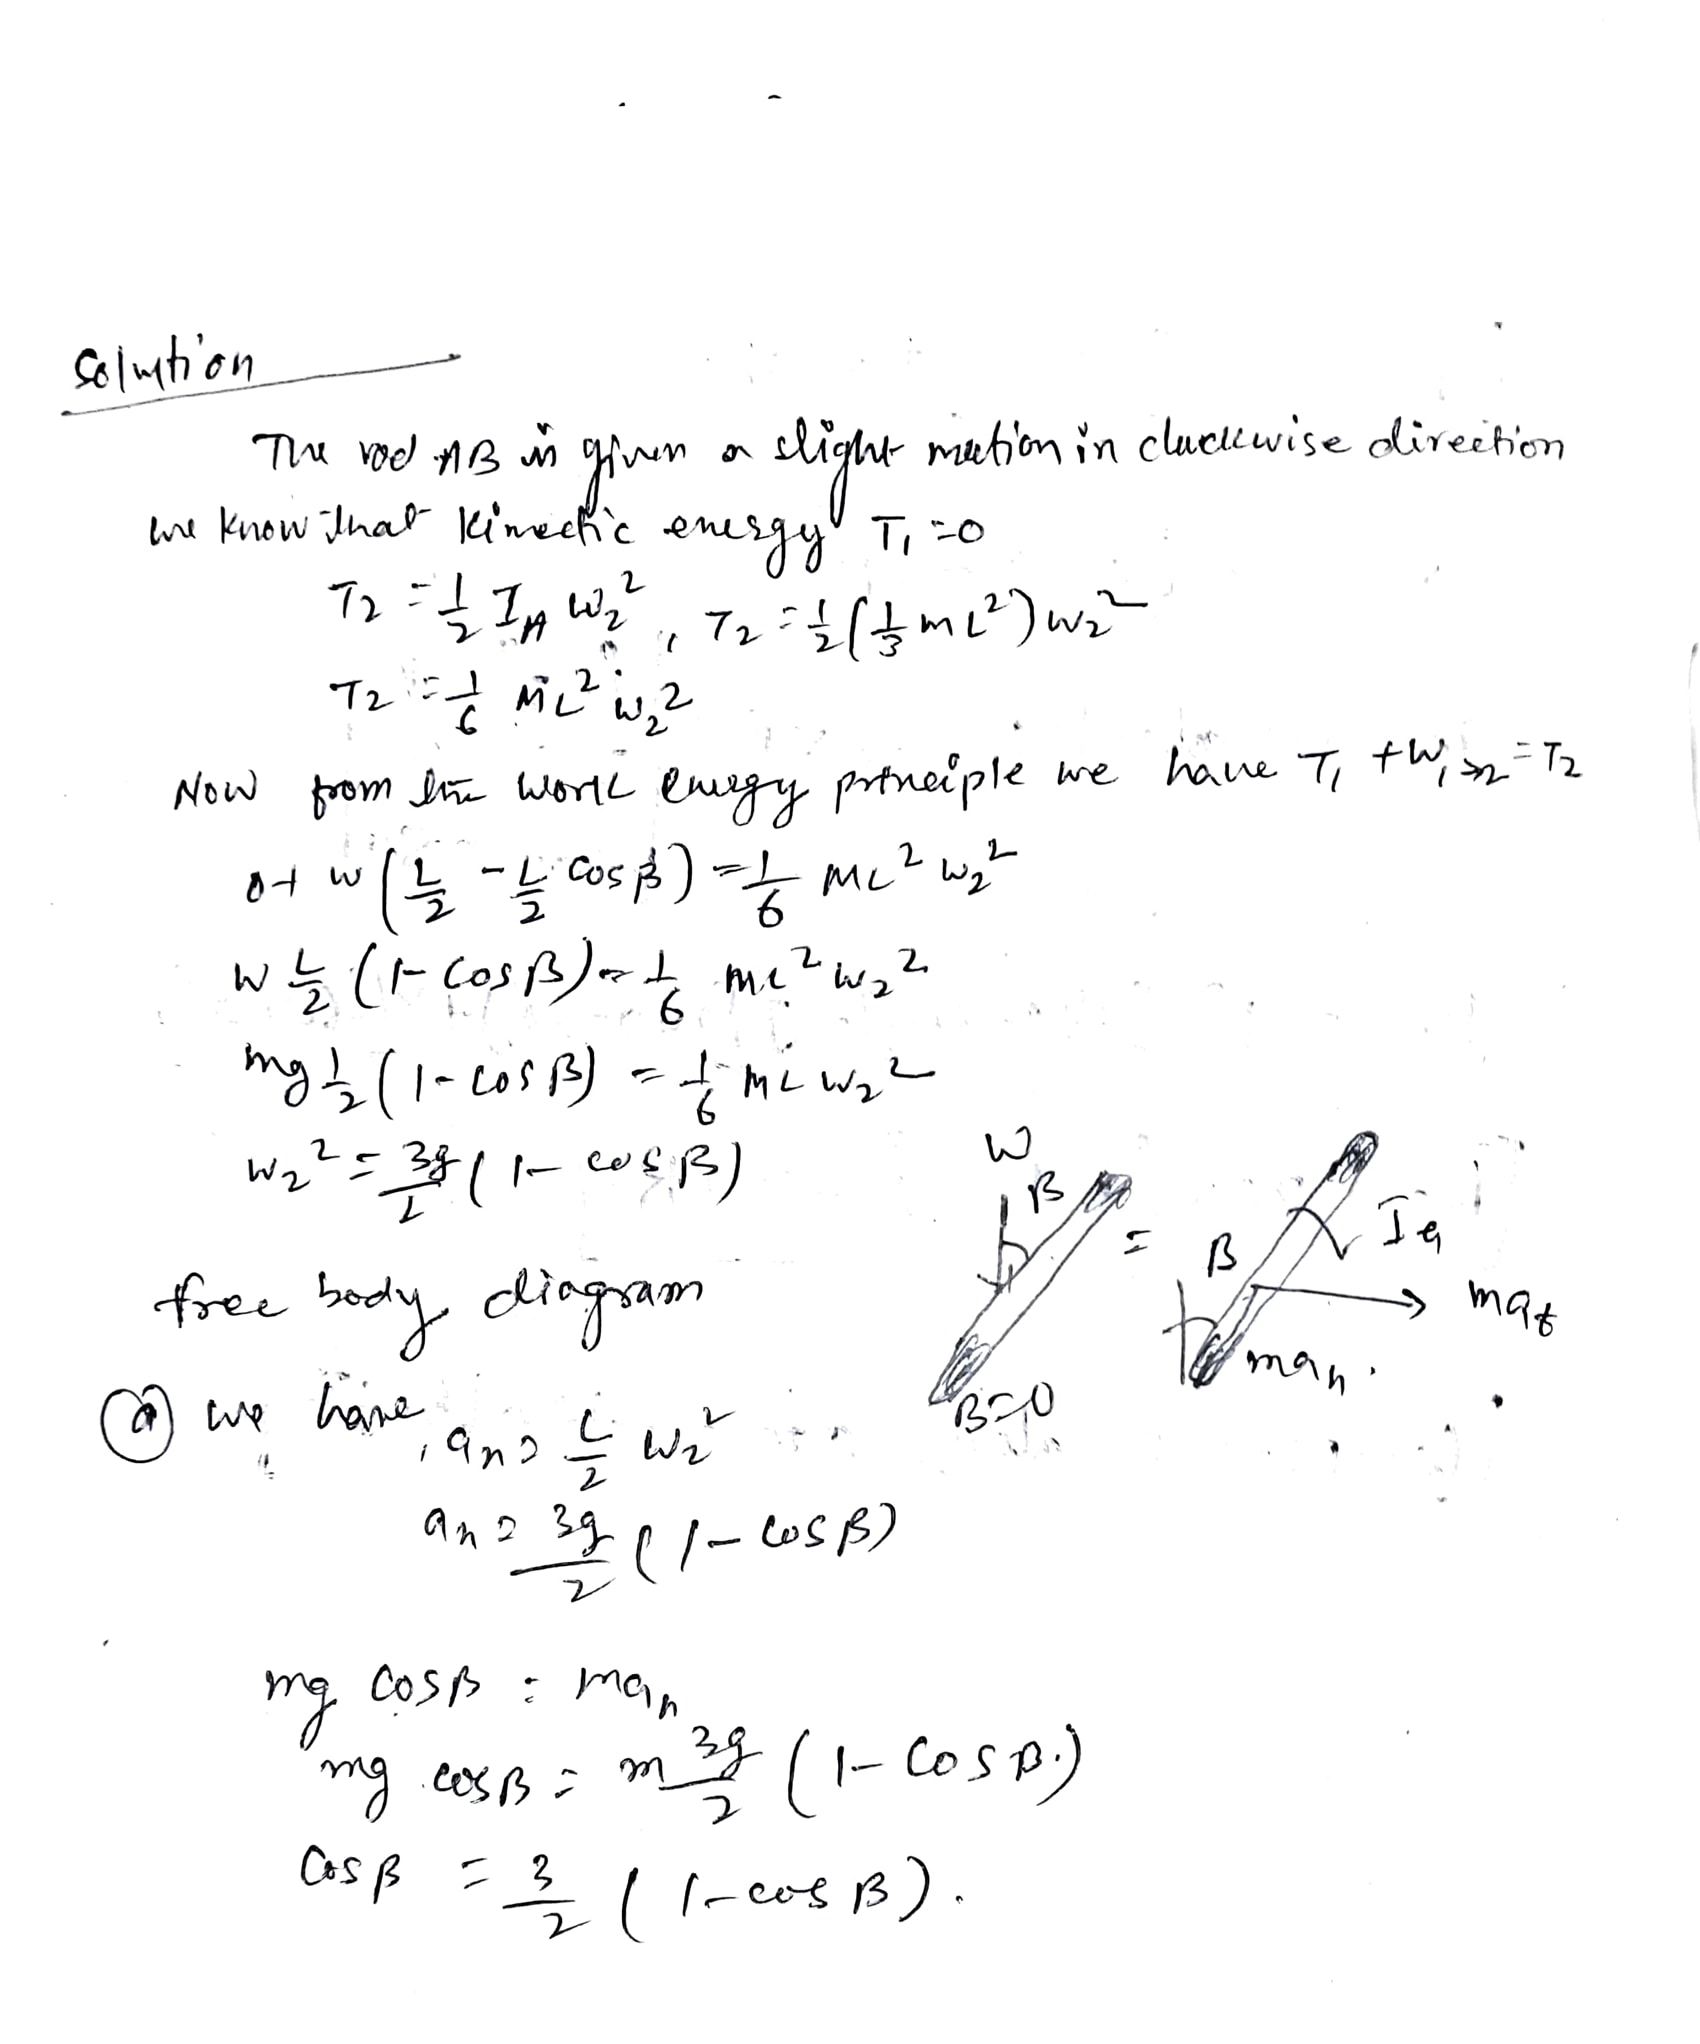 Solution
The rod AB is given a slight motion in clockwise direction
we know that kinectic energy T₁ = 0
T₂ = 1/2 I_A ω₂² , T₂ = 1/2 (1/3 mL²) ω₂²
T₂ = 1/6 mL² ω₂²
Now from the work energy principle we have T₁ + W₁→₂ = T₂
0 + W (L/2 - L/2 cosβ) = 1/6 mL² ω₂²
W L/2 (1 - cosβ) = 1/6 mL² ω₂²
mg 1/2 (1 - cosβ) = 1/6 mL ω₂²
ω₂² = 3g/L (1 - cosβ)
W
β
=
β
Iα
free body diagram
ma_t
ma_n
B=0
(a) we have, a_n = L/2 ω₂²
a_n = 3g/2 (1 - cosβ)
mg cosβ = ma_n
mg cosβ = m 3g/2 (1 - cosβ)
cosβ = 3/2 (1 - cosβ).